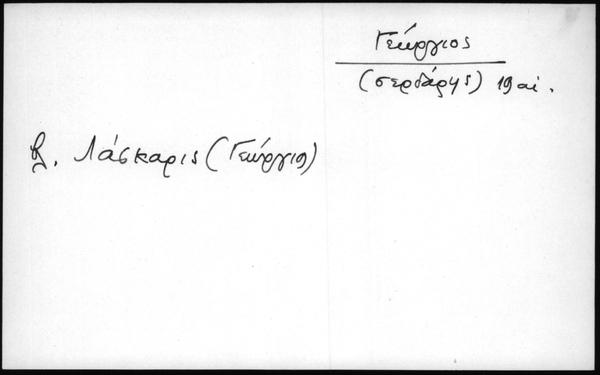 Γεώργιος
(σερδάρης) 19 αἰ.
βλ. Λάσκαρις (Γεώργιος)